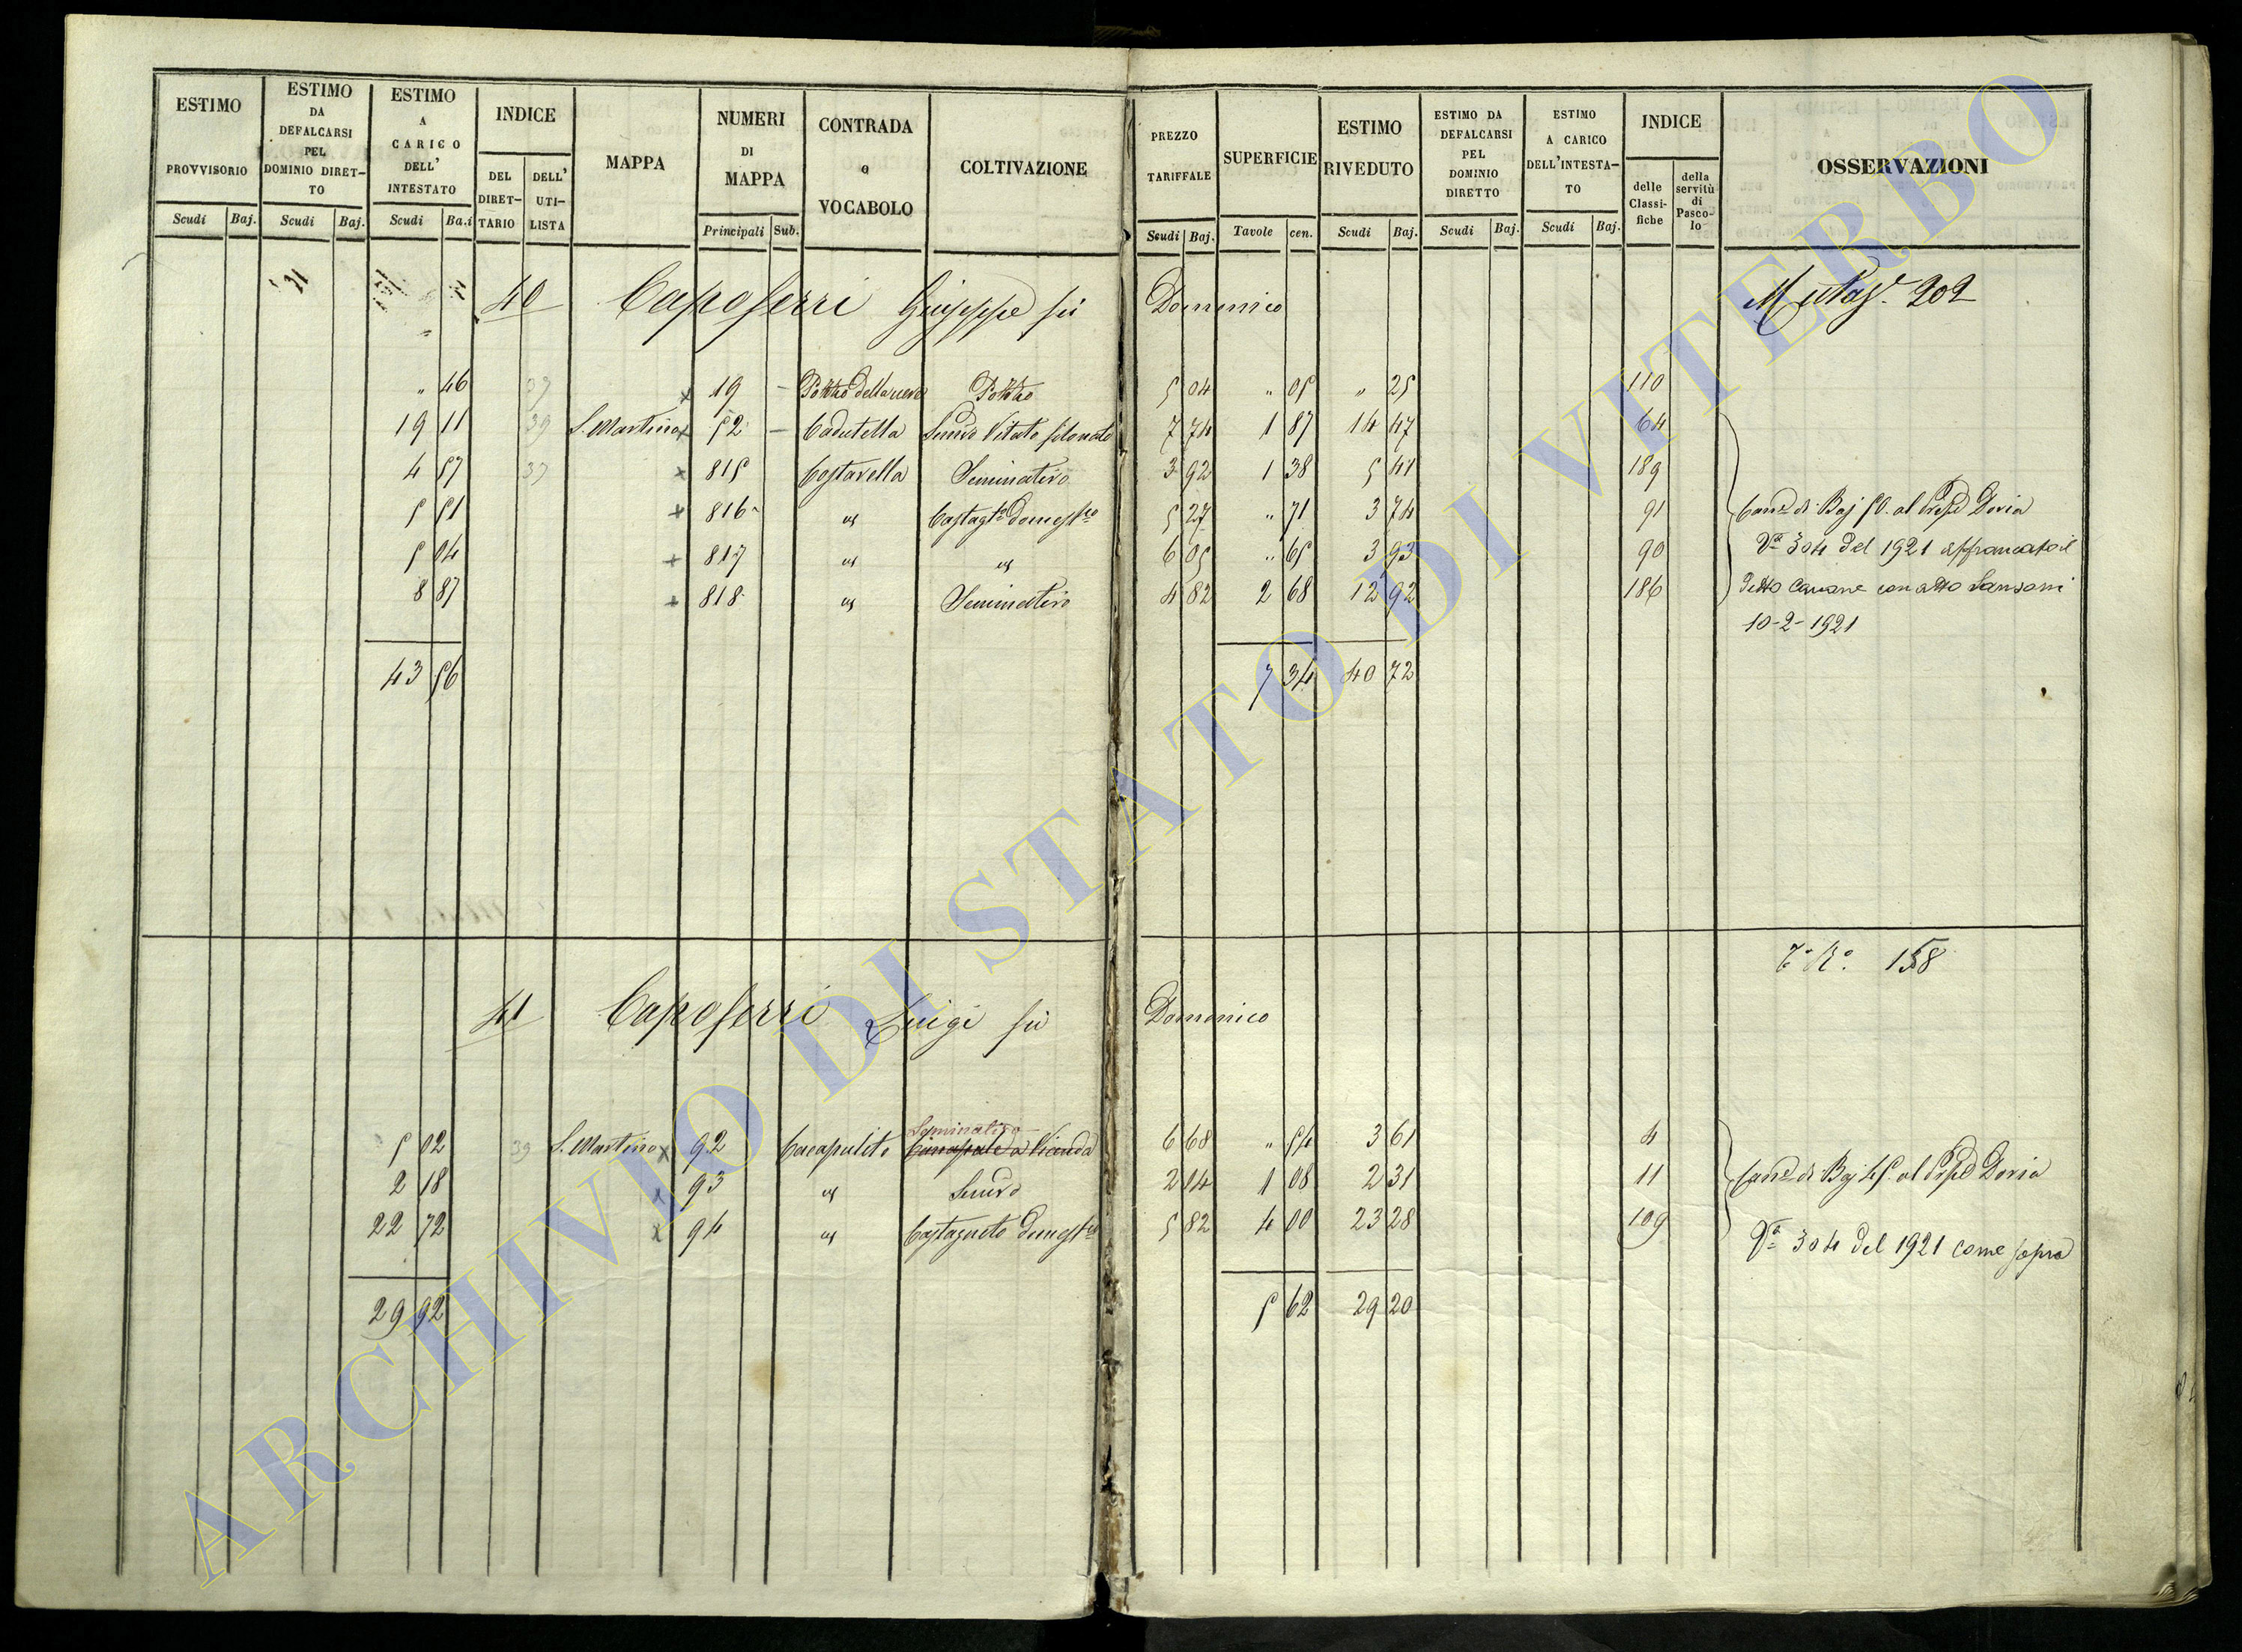 ESTIMO PROVVISORIO Scudi Baj.
ESTIMO DA DEFALCARSI PEL DOMINIO DIRET-TO Scudi Baj.
ESTIMO A CARICO DELL' INTESTATO Scudi Ba.i
INDICE DEL DIRET-TARIO DELL' UTI-LISTA
MAPPA
NUMERI DI MAPPA Principali Sub.
CONTRADA o VOCABOLO
COLTIVAZIONE
PREZZO TARIFFALE Scudi Baj.
SUPERFICIE Tavole cen.
ESTIMO RIVEDUTO Scudi Baj.
ESTIMO DA DEFALCARSI PEL DOMINIO DIRETTO Scudi Baj.
ESTIMO A CARICO DELL'INTESTA-TO Scudi Baj.
INDICE delle Classi-fiche della servitù di Pasco-lo
OSSERVAZIONI
40 Capoferri Giuseppe fù Domenico 202
" 46 39 x 19 - 5 04 " 05 " 25 110
19 11 39 S. Martino x 52 - Cadutella Semvo Vitato 7 74 1 87 14 47 64
4 57 39 x 815 Costarella Seminativo 3 92 1 38 5 41 189
5 51 x 816 " Castagto domestco 5 27 " 71 3 74 91 Cane di Baj 50. al Pripe Doria
5 04 x 817 " " 6 05 " 65 3 93 90 Va 304 del 1921 affrancato il
8 87 x 818 " Seminativo 4 82 2 68 12 92 186 detto Canone con atto Sansoni
10-2-1921
43 56 7 34 40 72
158
41 Capoferri Luigi fù Domenico
Seminativo
5 02 39 S. Martino x 92 Cacapulito Canapale a Vicenda 6 68 " 54 3 61 4
2 18 x 93 " Semvo 2 14 1 08 2 31 11 Cane di Baj 45. al Pripe Doria
22 72 x 94 " Castagneto domestco 5 82 4 00 23 28 109
Va 304 del 1921 come sopra
29 92 5 62 29 20
ARCHIVIO DI STATO DI VITERBO